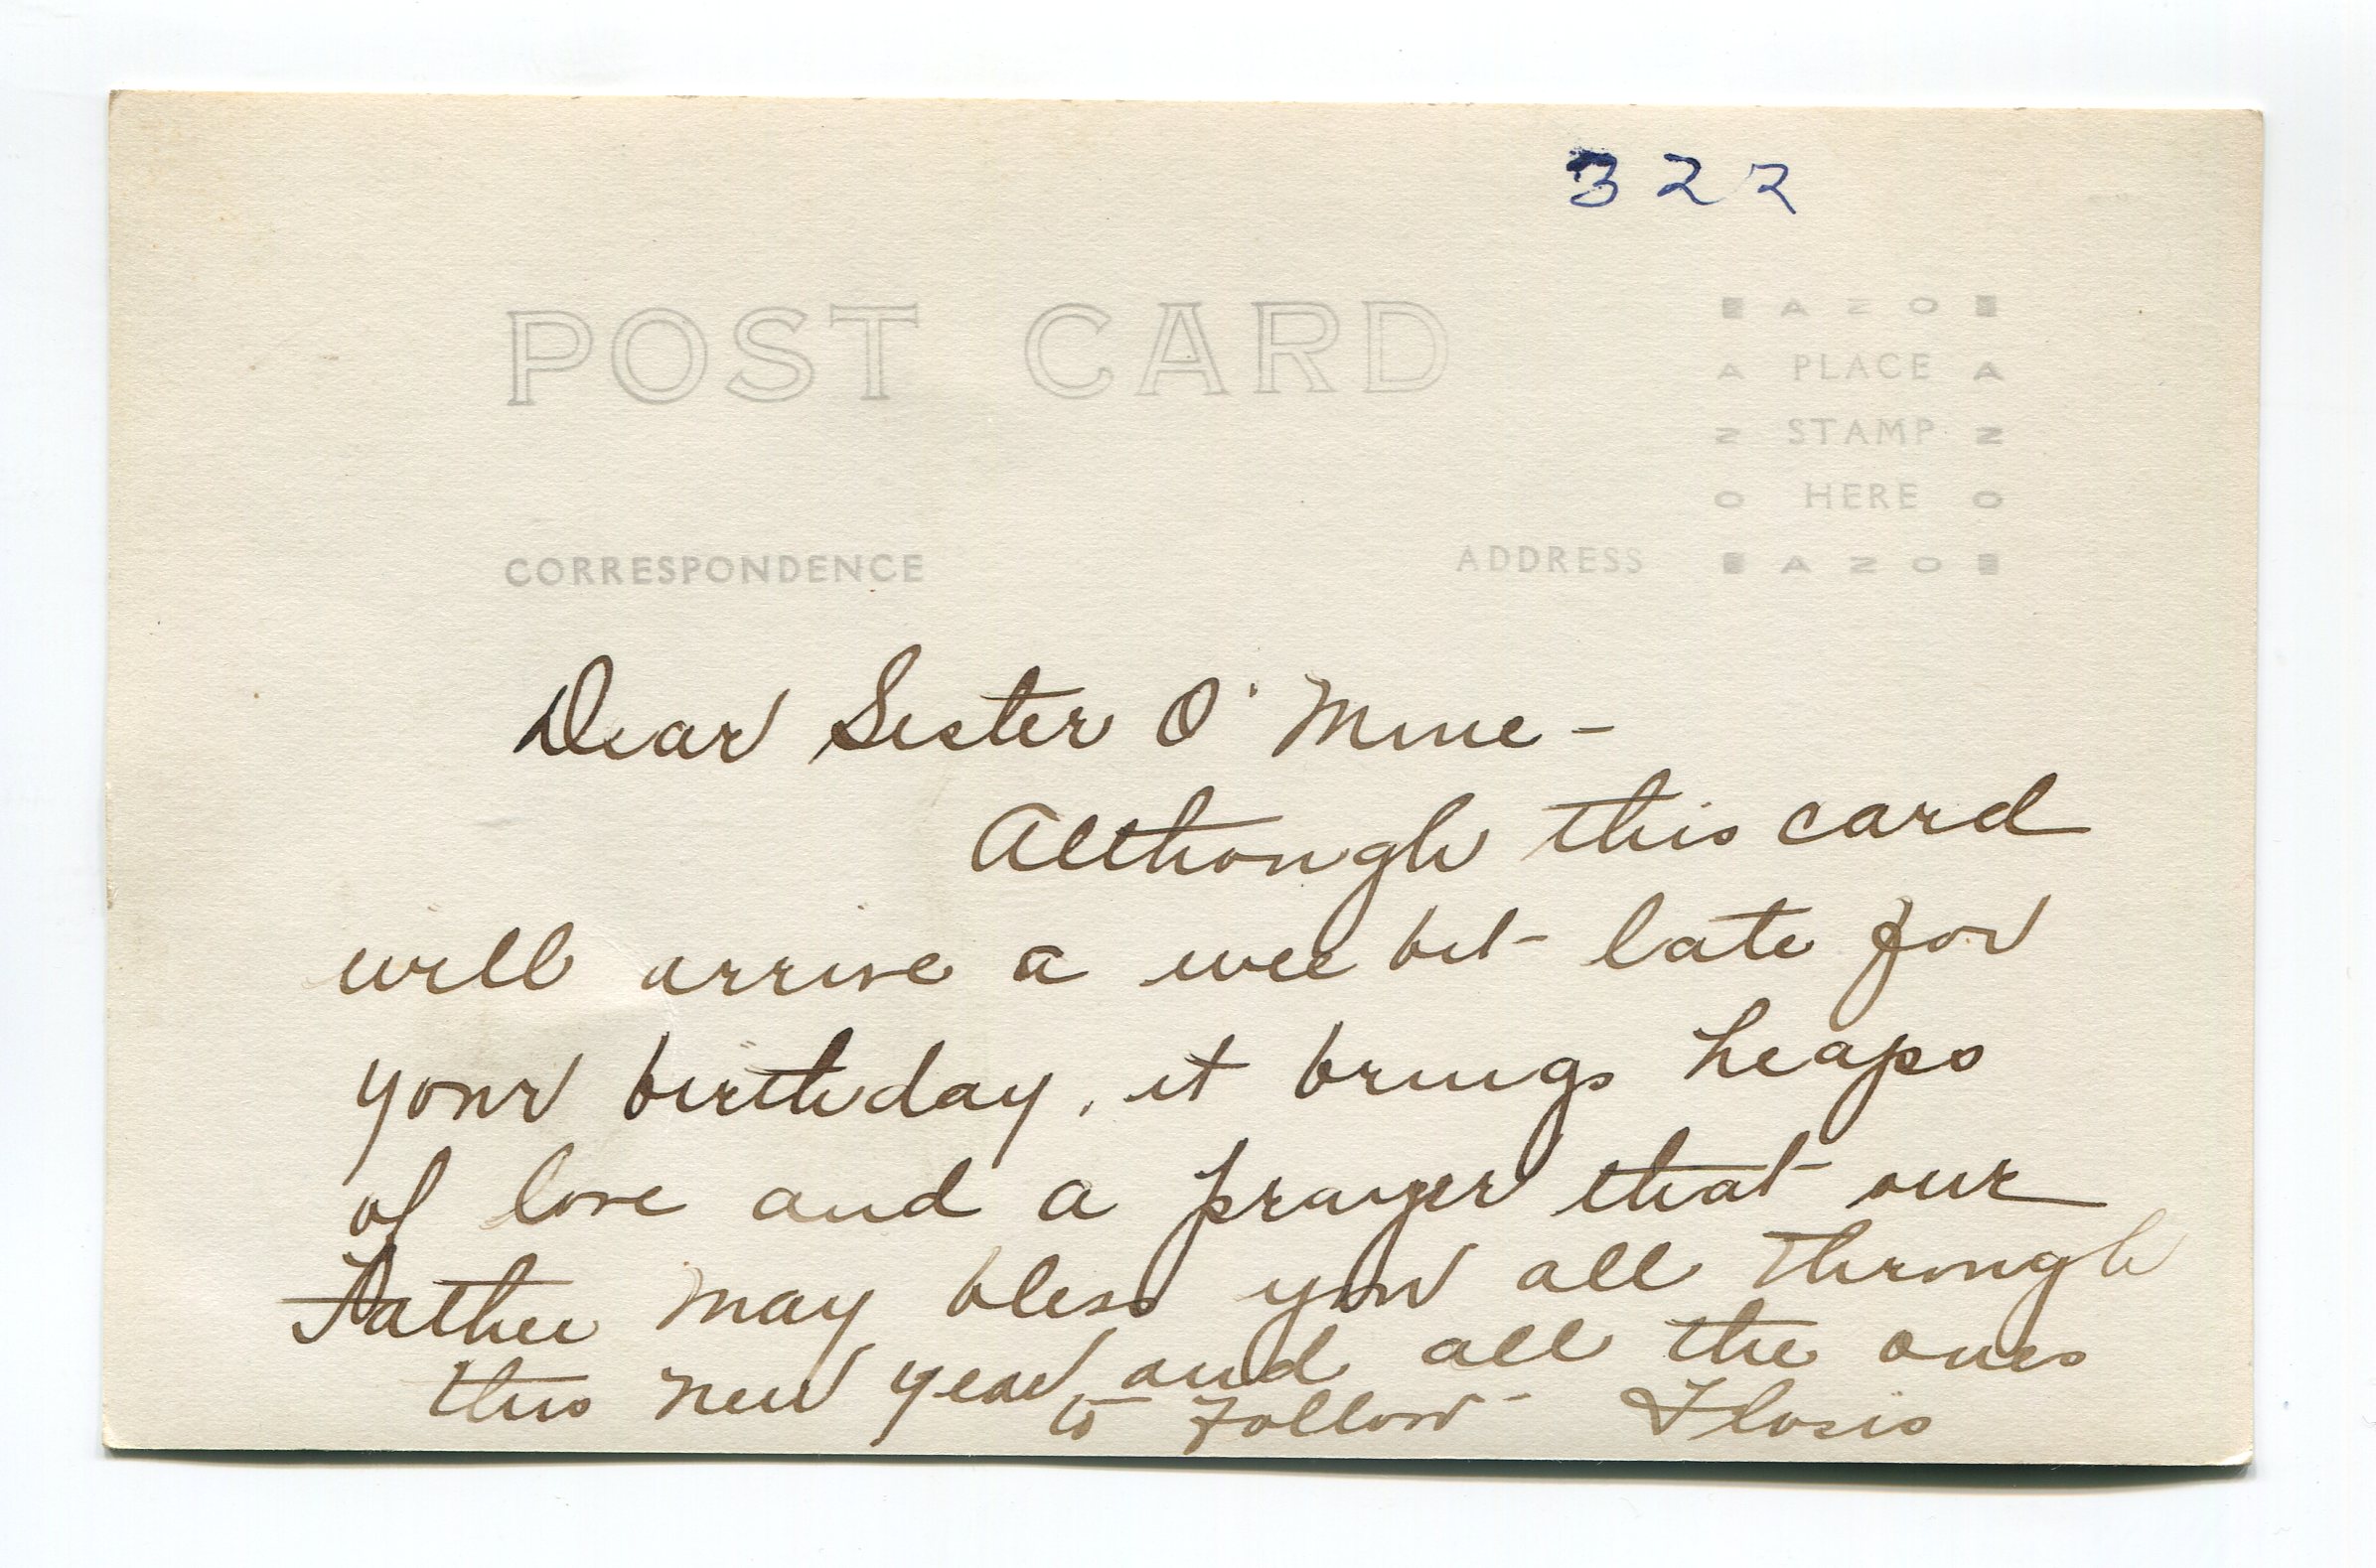 322
POST CARD
AZO
A PLACE A
Z STAMP Z
O HERE O
CORRESPONDENCE ADDRESS AZO
Dear Sister O' Mine -
Although this card
will arrive a wee bit late for
your birthday, it brings heaps
of love and a prayer that our
Father may bless you all through
this new year and all the ones
to follow -